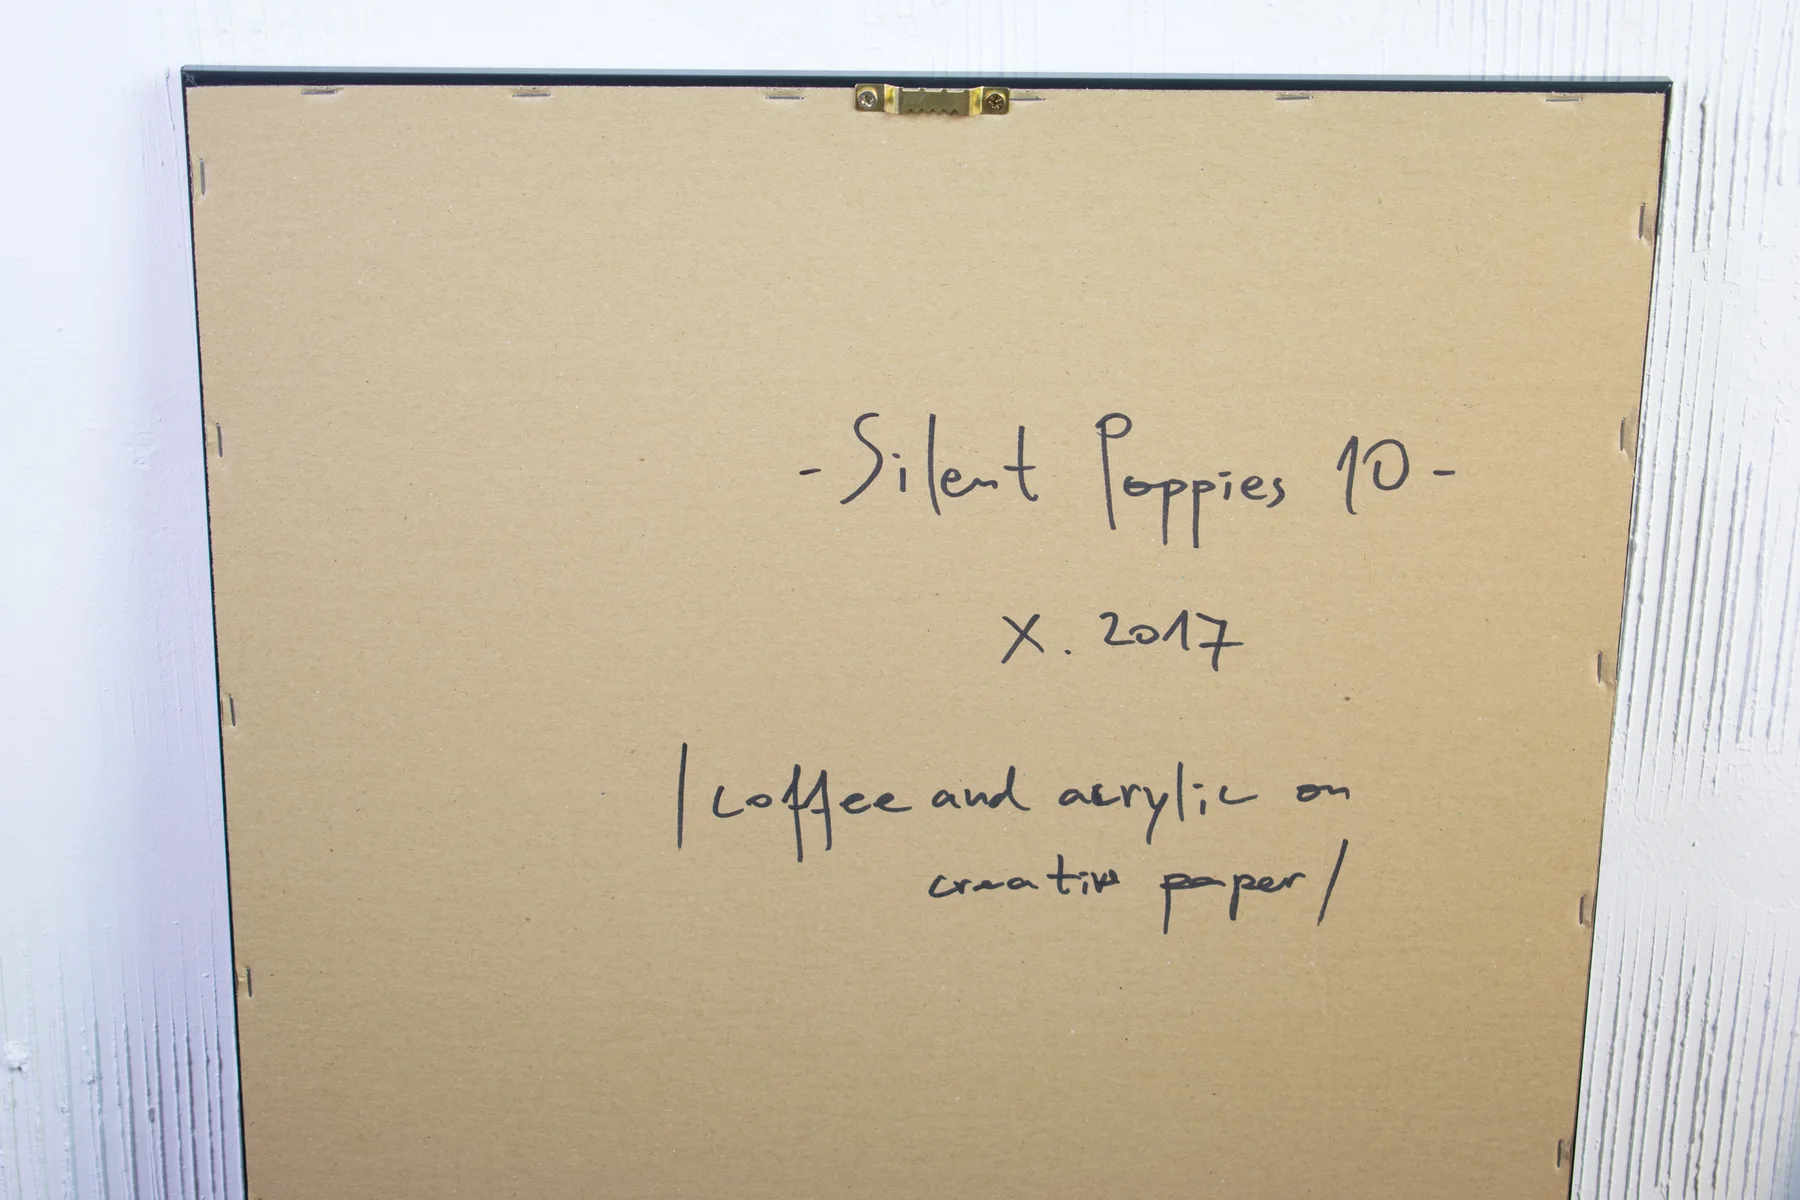 - Silent Poppies 10 -
X. 2017
/ coffee and acrylic on
creative paper /